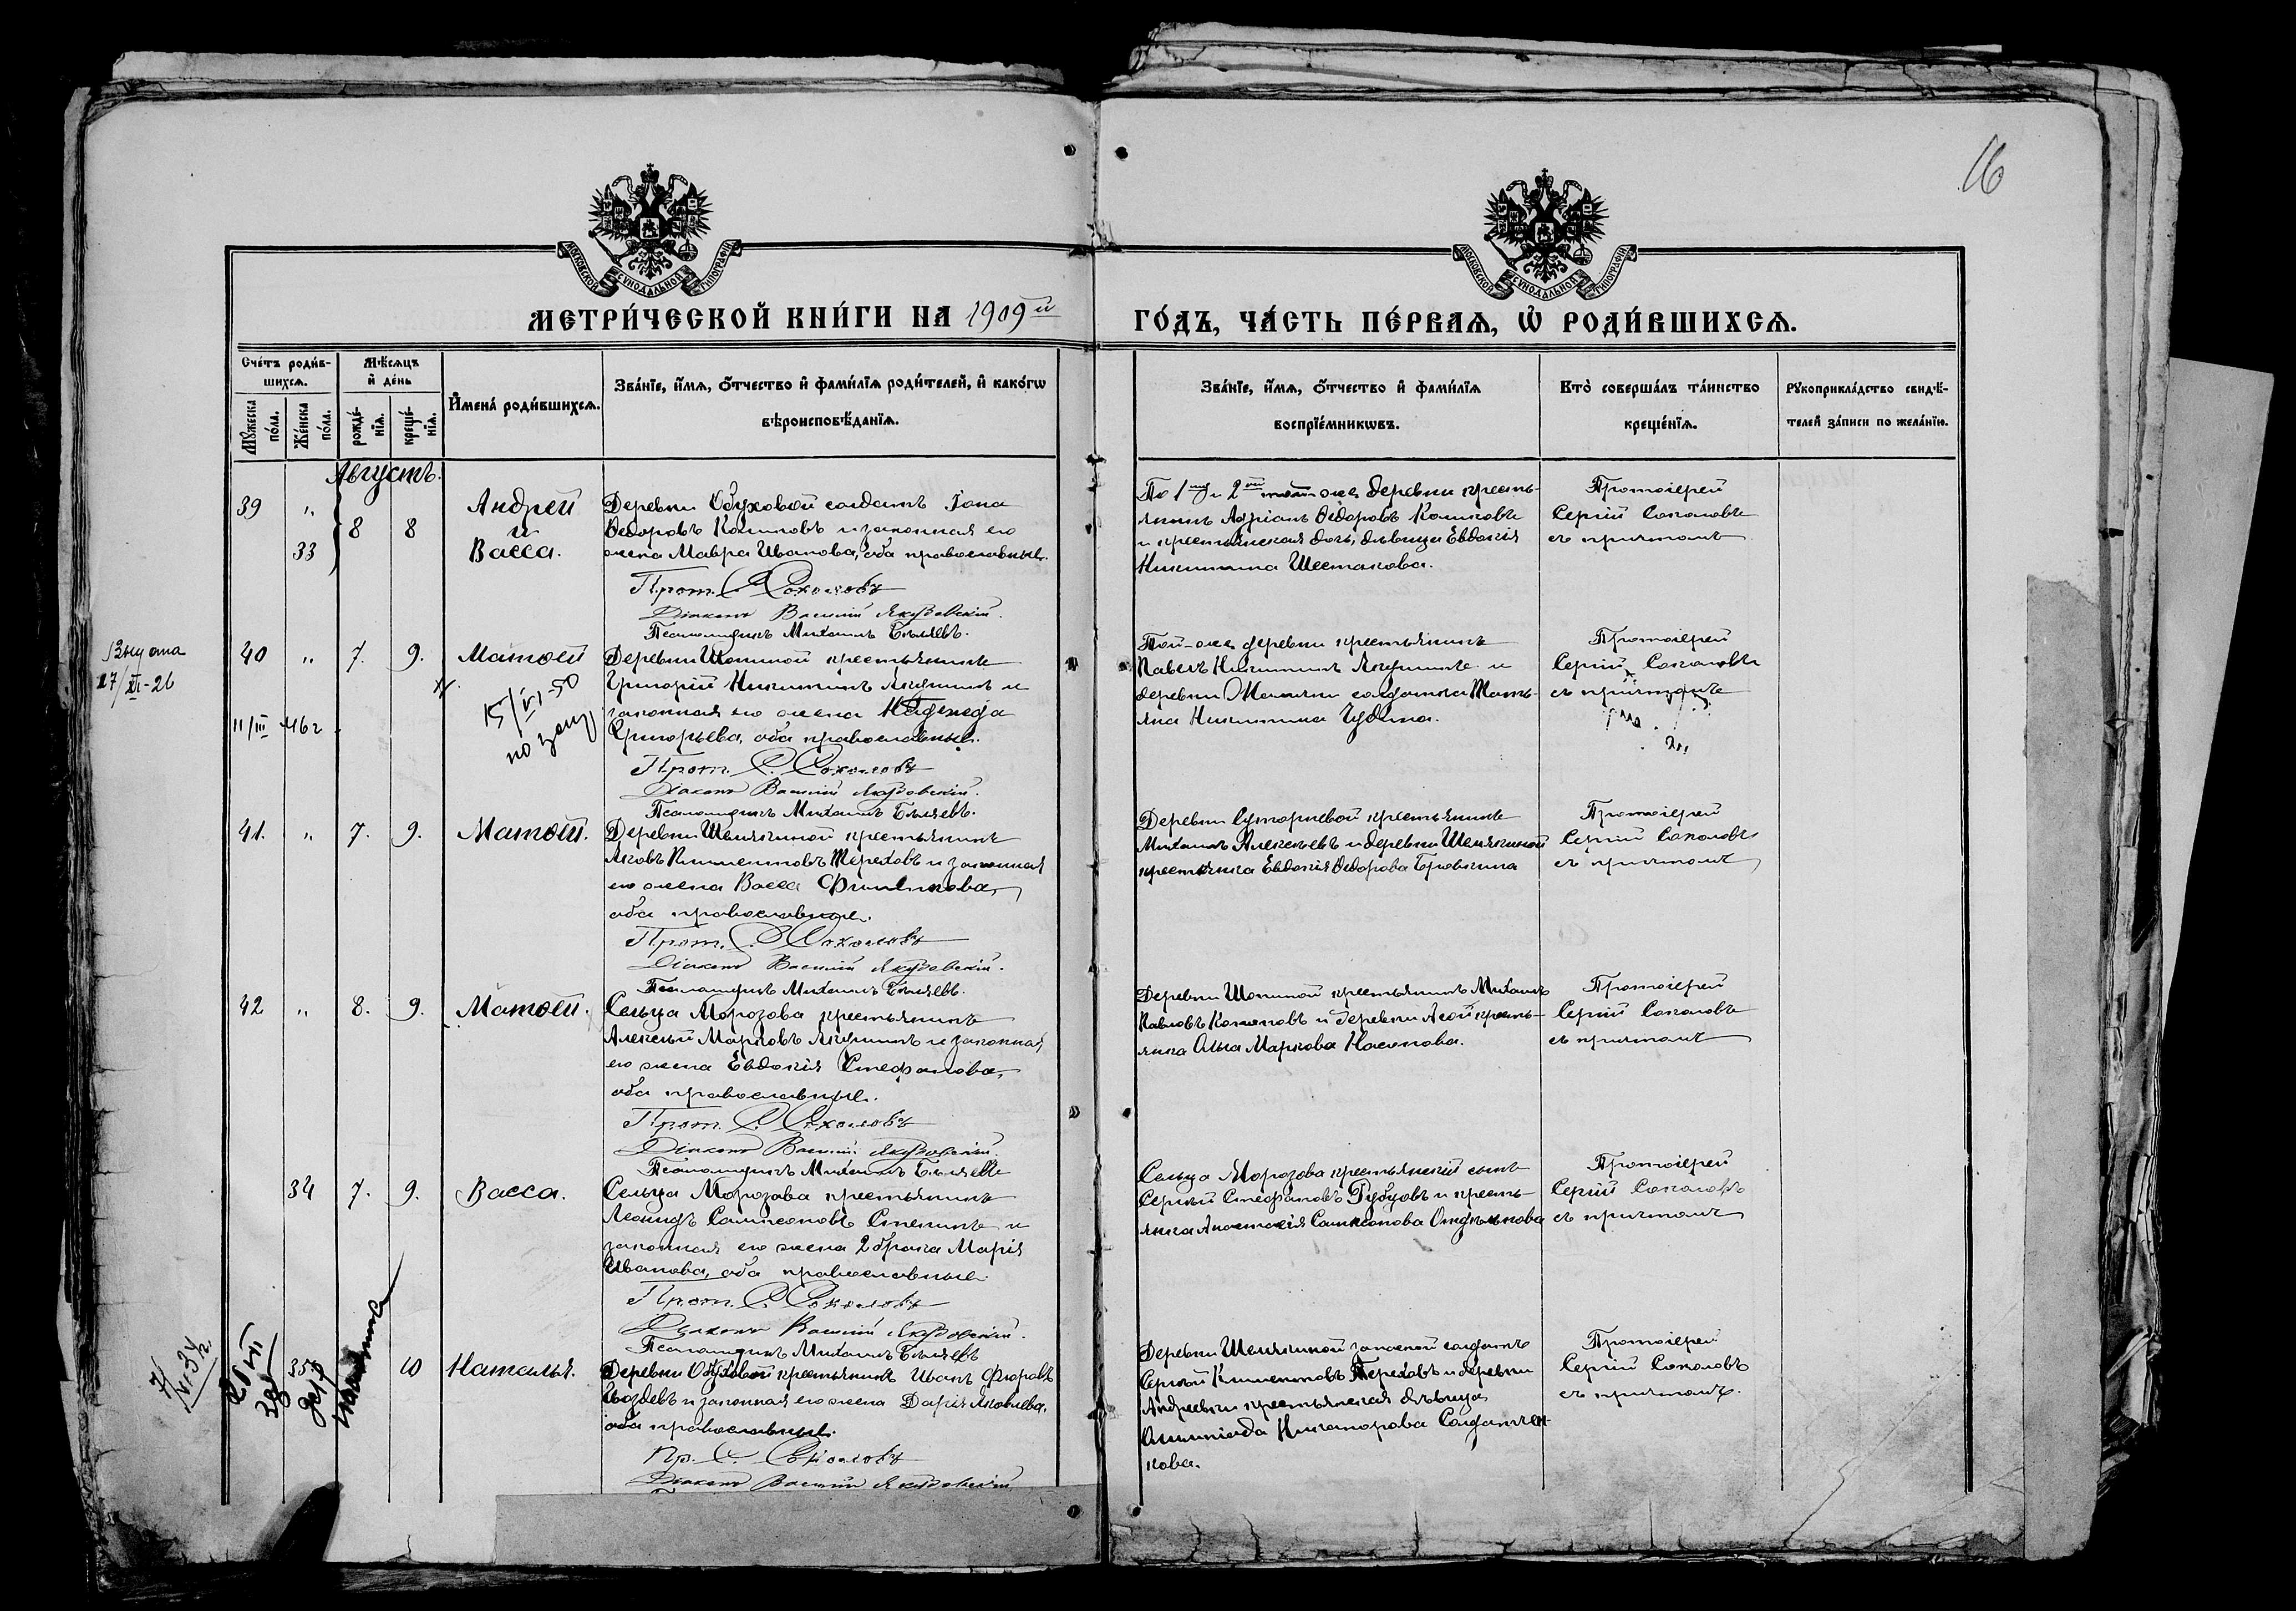 16
МОСКОВСКОЙ СѴНОДАЛЬНОЙ ТИПОГРАФІИ
МОСКОВСКОЙ СѴНОДАЛЬНОЙ ТИПОГРАФІИ
МЕТРИ́ЧЕСКОЙ КНИ́ГИ НА 1909й ГО́ДЪ, ЧА́СТЬ ПЕ́РВАѦ, Ѡ РОДИ́ВШИХСѦ.
Сче́тъ роди́в-
шихсѧ.
Мꙋ́жеска по́ла.
Же́нска по́ла.
Мѣ́сѧцъ
и҆ де́нь
рожде́-
нїѧ.
креще́-
нїѧ.
И҆мена̀ роди́вшихсѧ.
Зва́нїе, и҆́мѧ, ѻ҆́тчество и҆ фами́лїѧ роди́телей, и҆ како́гѡ
вѣроисповѣ́данїѧ.
Зва́нїе, и҆́мѧ, ѻ҆́тчество и҆ фами́лїѧ
воспрїе́мникѡвъ.
Кто̀ соверша́лъ та́инство
креще́нїѧ.
Рꙋкоприкла́дство свидѣ́-
телей за́писи по жела́нїю.
Августъ.
39 " 8 8 Андрей
и
33 Васса.
Деревни Обуховой солдатъ Іона
Ѳедоровъ Калиновъ и законная его
жена Мавра Иванова, оба православные.
Прот. С. Соколовъ
Діаконъ Василій
Псаломщикъ Михаилъ Бѣляевъ.
По 1му и 2й той-же деревни кресть-
янинъ Адріанъ Ѳедоровъ Калиновъ
и крестьянская дочь, дѣвица Евдокія
Никитина Шестакова.
Протоіерей
Сергій Соколовъ
съ причтомъ
17/XI-26
11/III 46 г
40 " 7. 9. Матѳей
15/VI-50
Деревни Шопиной крестьянинъ
Григорій Никитинъ Якунинъ и
законная его жена Надежда
Григорьева, оба православные.
Прот. С. Соколовъ
Діаконъ Василій
Псаломщикъ Михаилъ Бѣляевъ.
Той-же деревни крестьянинъ
Павелъ Никитинъ Якунинъ и
деревни солдатка Тать-
яна Никитина
Протоіерей
Сергій Соколовъ
съ причтомъ
41. " 7. 9. Матѳей.
Деревни Шенякиной крестьянинъ
Яковъ Климентовъ Тереховъ и законная
его жена Васса Филиппова,
оба православные.
Прот. С. Соколовъ
Діаконъ Василій
Псаломщикъ Михаилъ Бѣляевъ.
Деревни крестьянинъ
Михаилъ Алексѣевъ и деревни Шенякиной
крестьянка Евдокія Ѳедорова
Протоіерей
Сергій Соколовъ
съ причтомъ
42 " 8. 9. Матѳей.
Сельца Морозова крестьянинъ
Алексѣй Марковъ Якунинъ и законная
его жена Евдокія Стефанова,
оба православные.
Прот. С. Соколовъ
Діаконъ Василій
Псаломщикъ Михаилъ Бѣляевъ
Деревни Шопиной крестьянинъ Михаилъ
Павловъ и деревни кресть-
янка Ольга Маркова
Протоіерей
Сергій Соколовъ
съ причтомъ
34 7. 9. Васса.
Сельца Морозова крестьянинъ
Леонидъ Сампсоновъ и
законная его жена 2 брака Марія
Иванова, оба православные.
Прот. С. Соколовъ
Діаконъ Василій
Псаломщикъ Михаилъ Бѣляевъ
Сельца Морозова крестьянскій сынъ
Сергѣй Стефановъ и кресть-
янка Анастасія Сампсонова
Протоіерей
Сергій Соколовъ
съ причтомъ
35 10 Наталья.
Деревни Обуховой крестьянинъ Иванъ
Гвоздевъ и законная его жена Дарія Яковлева,
оба православные.
Пр. С. Соколовъ
Діаконъ Василій
Деревни Шенякиной запасной солдатъ
Сергѣй Климентовъ Тереховъ и деревни
Андреевки крестьянская дѣвица
Олимпіада Никанорова Солдатен-
кова.
Протоіерей
Сергій Соколовъ
съ причтомъ.